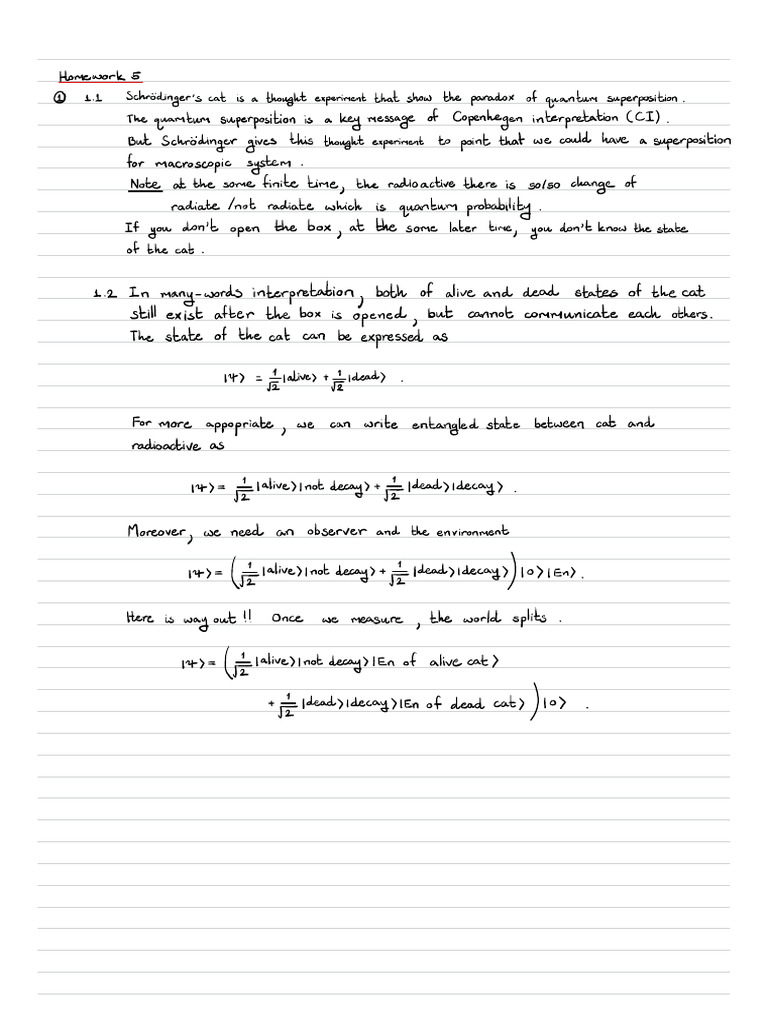 Homework 5
① 1.1 Schrödinger's cat is a thought experiment that show the paradox of quantum superposition.
The quamtum superposition is a key message of Copenhegen interpretation (CI).
But Schrödinger gives this thought experiment to point that we could have a superposition
for macroscopic system.
Note at the some finite time, the radioactive there is 50/50 change of
radiate /not radiate which is quantum probability.
If you don't open the box, at the some later time, you don't know the state
of the cat.
1.2 In many-words interpretation, both of alive and dead states of the cat
still exist after the box is opened, but cannot communicate each others.
The state of the cat can be expressed as
|Ψ⟩ = 1/√2 |alive⟩ + 1/√2 |dead⟩ .
For more appopriate, we can write entangled state between cat and
radioactive as
|Ψ⟩ = 1/√2 |alive⟩|not decay⟩ + 1/√2 |dead⟩|decay⟩ .
Moreover, we need an observer and the environment
|Ψ⟩ = (1/√2 |alive⟩|not decay⟩ + 1/√2 |dead⟩|decay⟩)|0⟩|En⟩.
Here is way out!! Once we measure, the world splits.
|Ψ⟩ = (1/√2 |alive⟩|not decay⟩|En of alive cat⟩
+ 1/√2 |dead⟩|decay⟩|En of dead cat⟩)|0⟩ .